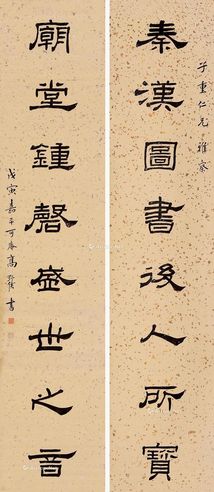 子重仁兄雅察
秦漢圖書後人所寶
廟堂鍾磬盛世之音
戊寅嘉平可庵高野侯書